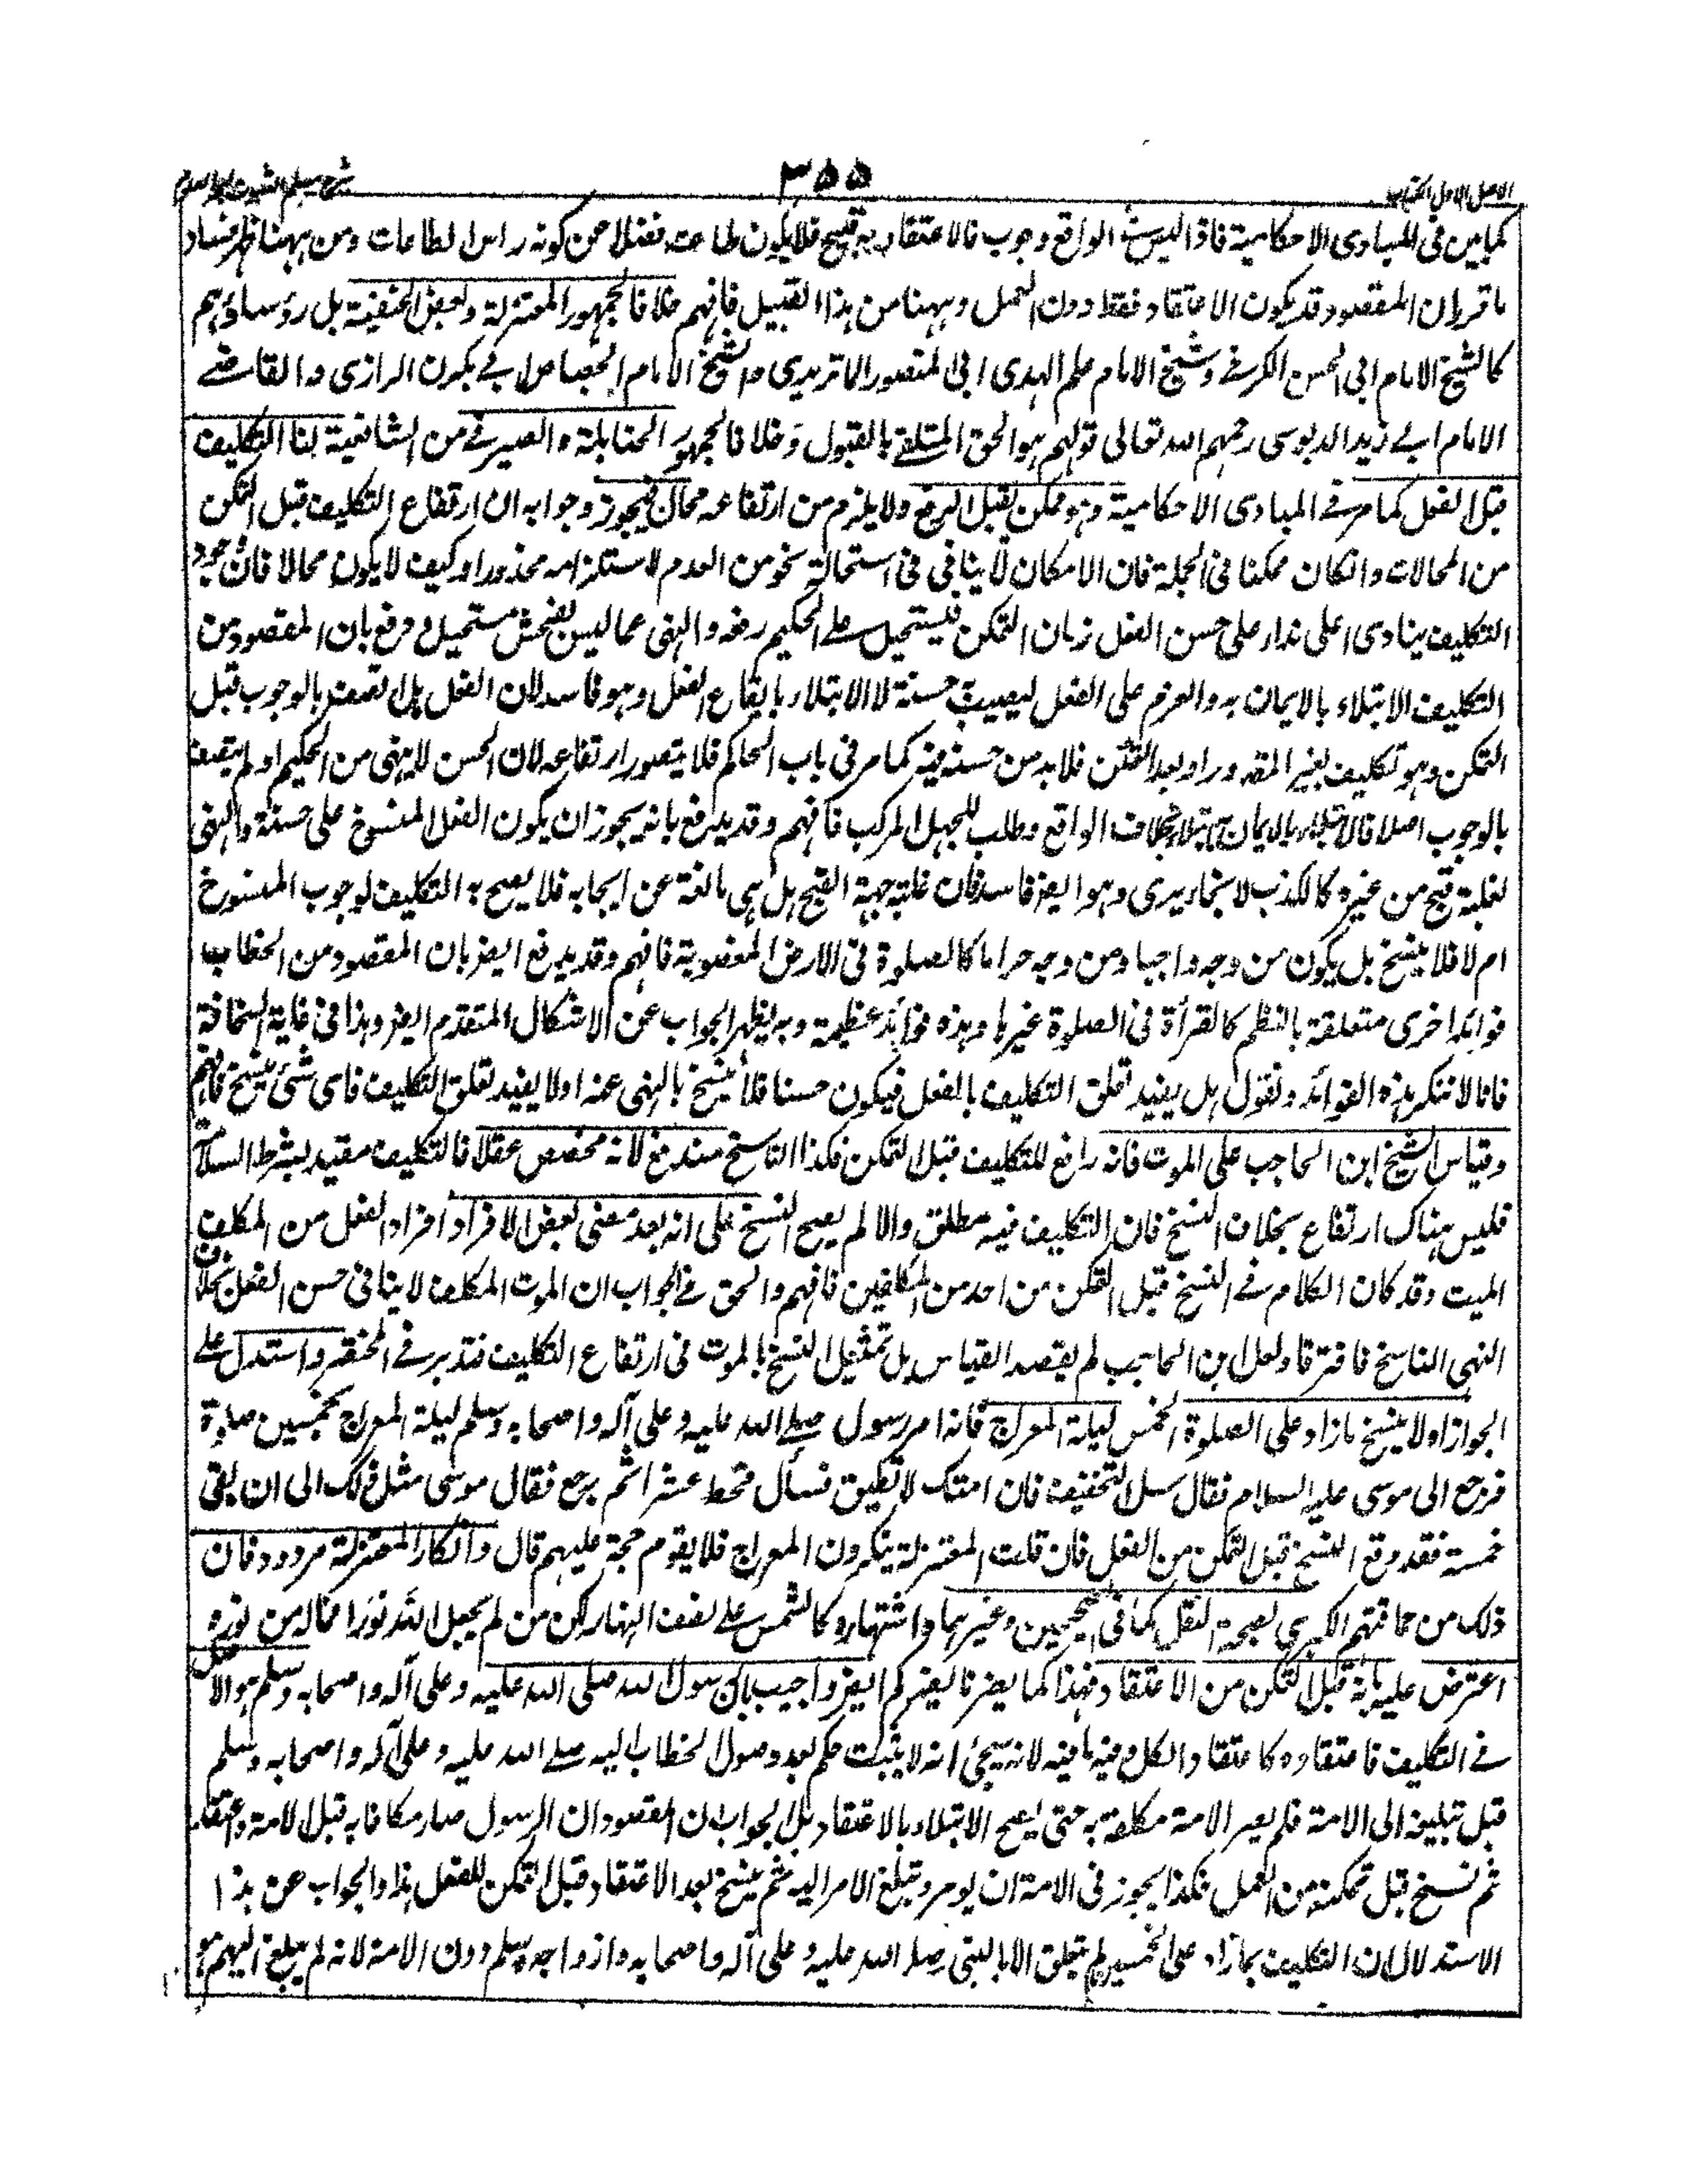 الاصل الاول الكتاب
٣٥٥
شرح مسلم الثبوت
كما بين فى المبادى الاحكامية فاذا ليس فى الواقع وجوب فالاعتقاد به قبيح فلا يكون طاعة فضلا من كونه راس الطاعات ومن ههنا ظهر فساد
ما قرر ان المقصود قد يكون الاعتقاد فقط دون العمل وههنا من هذا القبيل فافهم خلافا لجمهور المعتزلة وبعض الحنفية بل رؤسائهم
كالشيخ الامام ابى الحسن الكرخى وشيخ الامام علم الهدى ابى المنصور الماتريدى والشيخ الامام الجصاص ابى بكرن الرازى والقاضى
الامام ابى زيد الدبوسى رحمهم الله تعالى قولهم هو الحق المتلقى بالقبول وخلافا لجمهور الحنابلة والصيرفى من الشافعية لنا التكليف
قبل الفعل كما مر فى المبادى الاحكامية وهو ممكن يقبل الرفع ولا يلزم من ارتفاعه محال فيجوز وجوابه ان ارتفاع التكليف قبل التمكن
من المحالات وان كان ممكنا فى الجملة فان الامكان لا ينافى فى استحالة نحو من العدم لاستلزامه محذورا وكيف لا يكون محالا فان وجود
التكليف ينادى اعلى نداء على حسن الفعل زمان التمكن فيستحيل على الحكيم رفعه والنهى عما ليس بفحش مستحيل ودفع بان المقصود من
التكليف الابتلاء بالايمان به والعزم على الفعل ليصيب حسنة لا الابتلاء بايقاع الفعل وهو فاسد لان الفعل هل اتصف بالوجوب قبل
التمكن وهو تكليف بغير المقدور او بعد التمكن فلا بد من حسنه فيه كما مر فى باب الحاكم فلا يتصور ارتفاعه لان الحسن لا ينهى من الحكيم او لم يتصف
بالوجوب اصلا فالابتلاء بالايمان ابتلاء بخلاف الواقع وطلب للجهل المركب فافهم وقد يدفع بانه يجوز ان يكون الفعل المنسوخ على حسنه والنهى
لغلبة قبح من غيره كالكذب لانجاء برى وهو ايضا فاسد فان غلبة جهة القبح هل هى مانعة عن ايجابه فلا يصح به التكليف لوجوب المنسوخ
ام لا فلا ينسخ بل يكون من وجه واجبا ومن وجه حراما كالصلوة فى الارض المغصوبة فافهم وقد يدفع ايضا بان المقصود من الخطاب
فوائد اخرى متعلقة بالنظم كالقرأة فى الصلوة وغيرها وهذه فوائد عظيمة وبه يظهر الجواب عن الاشكال المتقدم ايضا وهذا فى غاية السخافة
فانا لا ننكر هذه الفوائد ونقول هل يفيد تعلق التكليف بالفعل فيكون حسنا فلا ينسخ بالنهى عنه او لا يفيد تعلق التكليف فاى شئ ينسخ فافهم
وقياس الشيخ ابن الحاجب على الموت فانه رافع للتكليف قبل التمكن فكذا الناسخ مندفع لانه مخصص عقلا فالتكليف مقيد بشرط السلامة
فليس هناك ارتفاع بخلاف النسخ فان التكليف فيه مطلق والا لم يصح النسخ على انه بعد معنى لبعض الافراد افراد الفعل من المكلف
الميت وقد كان الكلام فى النسخ قبل التمكن من احد من المكلفين فافهم والحق فى الجواب ان الموت المكلف لا ينافى حسن الفعل بخلاف
النهى الناسخ فافترقا ولعل ابن الحاجب لم يقصد القياس بل تمثيل النسخ بالموت فى ارتفاع التكليف فتدبر فى المختصر واستدل على
الجواز اولا بنسخ ما زاد على الصلوة الخمس ليلة المعراج فانه امر رسول صلى الله عليه وعلى آله واصحابه وسلم ليلة المعراج بخمسين صلوة
فرجع الى موسى عليه السلام فقال سل التخفيف فان امتك لا تطيق فسأل فحط عشرا ثم رجع فقال موسى مثل ذلك الى ان بقى
خمسة فقد وقع النسخ قبل التمكن من الفعل فان قلت المعتزلة ينكرون المعراج فلا يقوم حجة عليهم قال وانكار المعتزلة مردود فان
ذلك من حماقتهم الكبرى لصحة النقل كما فى الصحيحين وغيرهما واشتهاره كالشمس على نصف النهار لكن من لم يجعل الله نورا فما له من نوره
اعترض عليه بانه قبل التمكن من الاعتقاد فهذا كما يضرنا يضركم ايضا واجيب بان رسول الله صلى الله عليه وعلى آله واصحابه وسلم هو الاصل
فى التكليف فاعتقاده كاعتقاد الكل وفيه ما فيه لانه سيجئ انه لا يثبت حكم بعد وصول الخطاب اليه صلى الله عليه وعلى آله واصحابه وسلم
قبل تبليغه الى الامة فلم يصر الامة مكلفة به حتى يصح الابتلاء بالاعتقاد بل الجواب ان المقصود ان الرسول صار مكلفا به قبل الامة واعتقد
ثم نسخ قبل تمكنه من العمل فكذا يجوز فى الامة ان يومر وتبلغ الامر اليه ثم ينسخ بعد الاعتقاد قبل التمكن للفعل هذا والجواب عن هذا
الاستدلال ان التكليف بما زاد على الخمس لم يتعلق الا بالنبى صلى الله عليه وعلى آله واصحابه وازواجه وسلم دون الامة لانه لم يبلغ اليهم